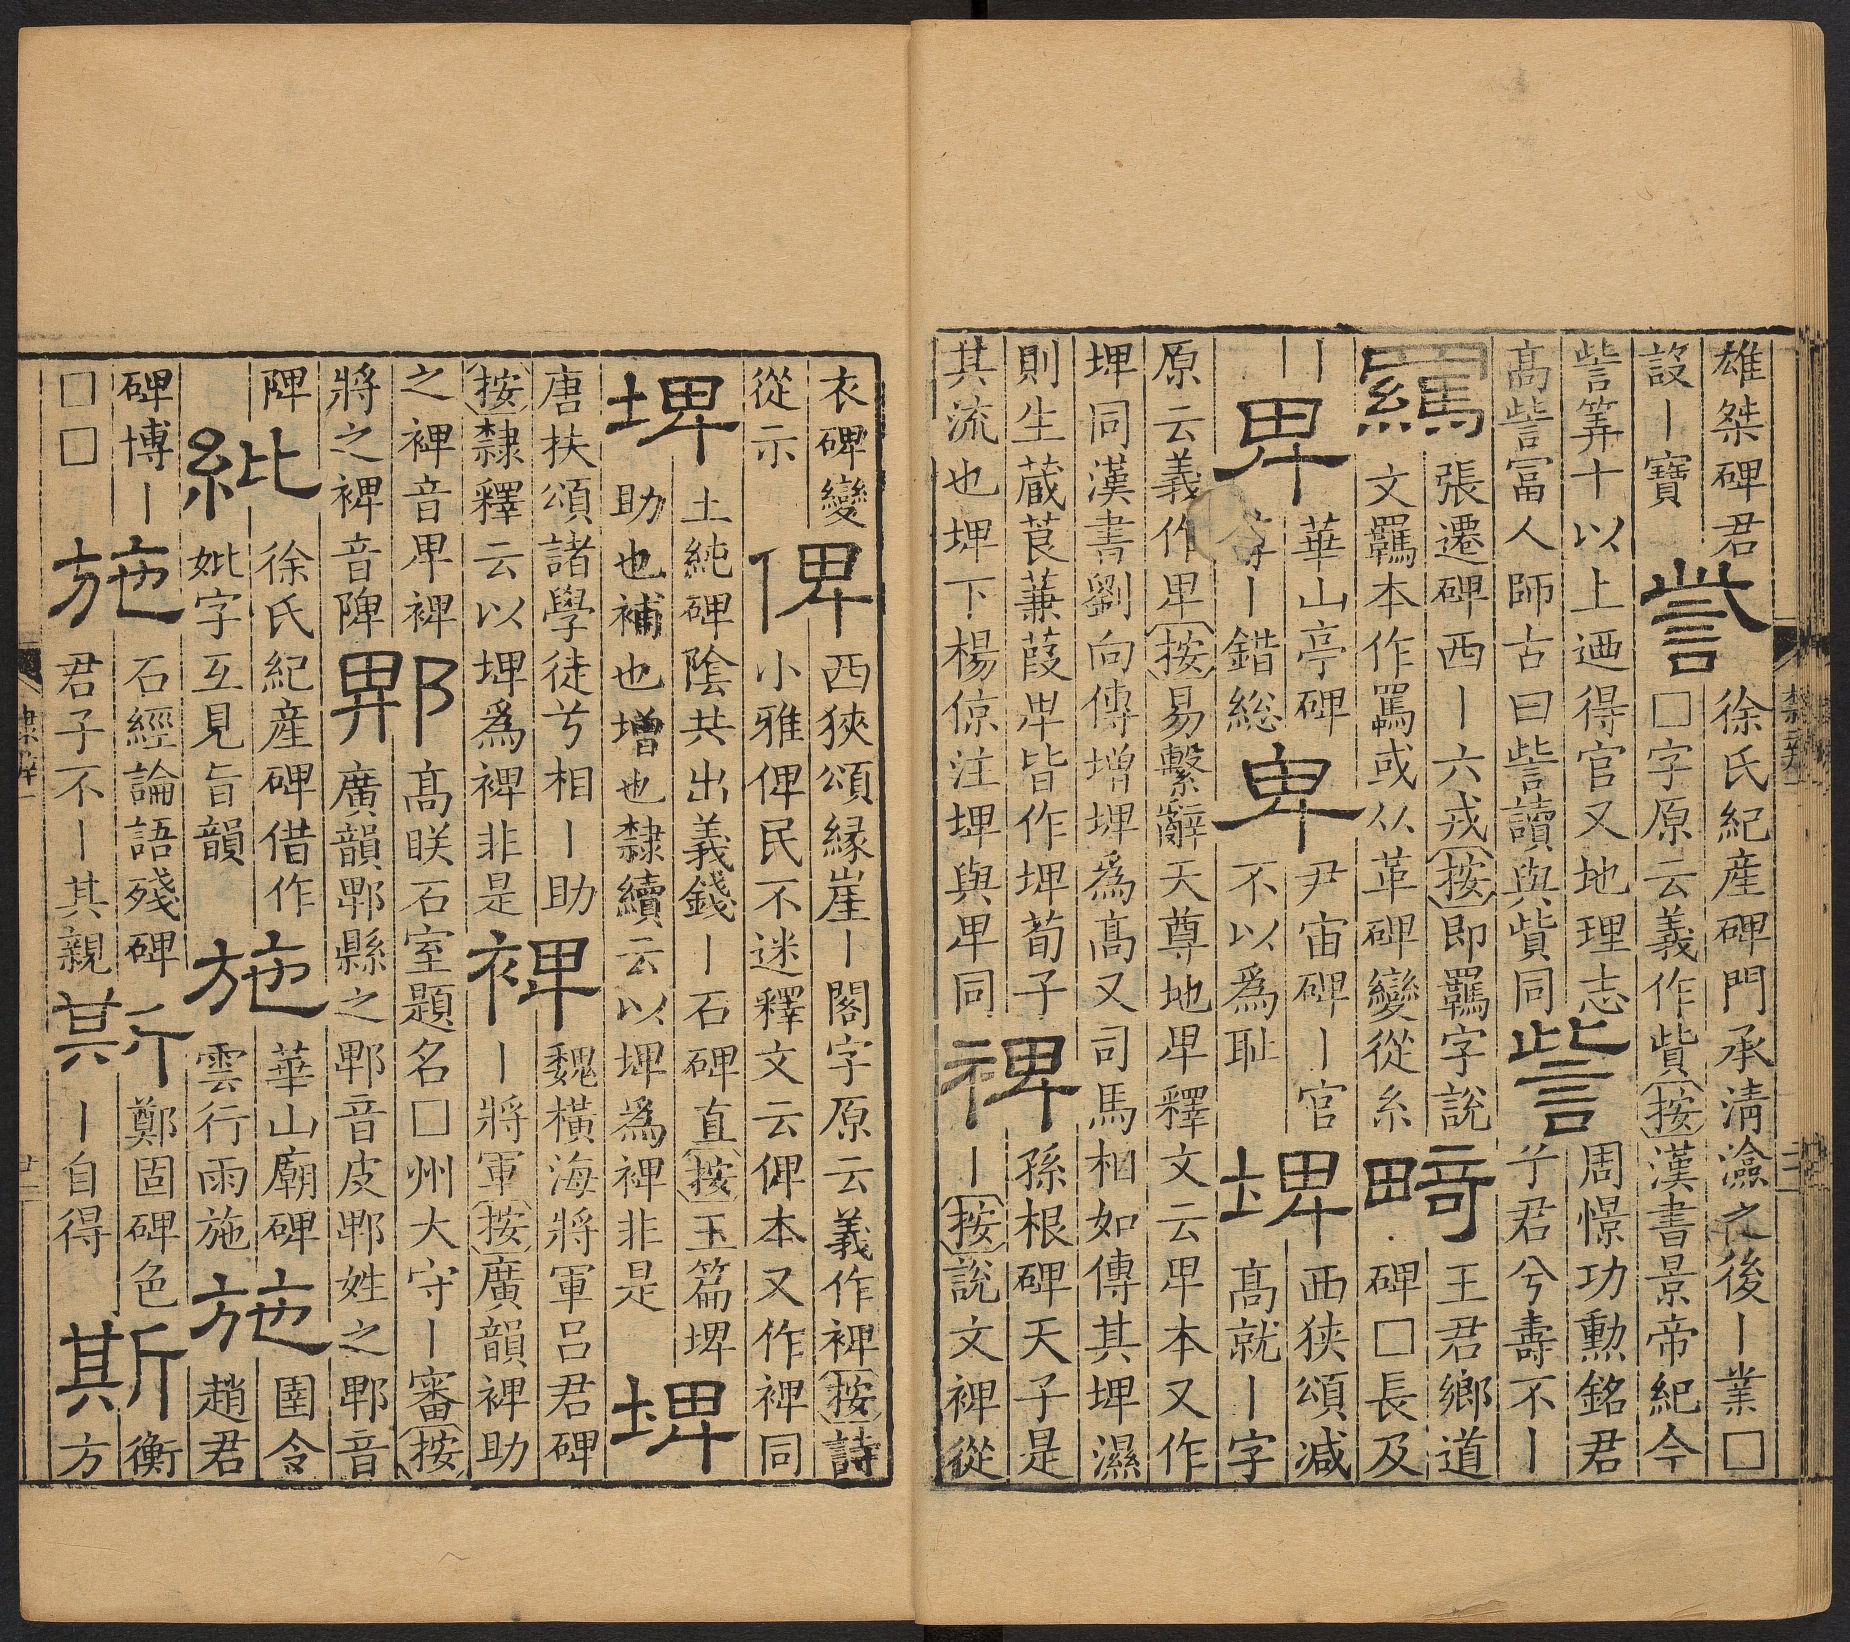 雄桀碑君
設〡寶
訾
徐氏紀産碑門承清瀹之後〡業□
□字原云義作貲按漢書景帝紀今
訾筭十以上迺得官又地理志
高訾富人師古曰訾讀與貲同
訾
周憬功勲銘君
亏君兮壽不〡
羈
張遷碑西〡六戎按即羈字說
文羈本作罵或从革碑變從糸
畸
王君鄉道
碑□長及
〡
〡
卑
華山亭碑
〡錯総
卑
尹宙碑〡官
不以爲耻
埤
西狹頌減
高就〡字
原云義作卑按易繫辭天尊地卑釋文云卑本又作
埤同漢書劉向傳增埤爲高又司馬相如傳其埤濕
則生蒇莨蒹葭卑皆作埤荀子
其流也埤下楊倞注埤與卑同
裨
孫根碑天子是
〡按說文裨從
衣碑變
從示
俾
西狹頌緣崖〡閣字原云義作裨按詩
小雅俾民不迷釋文云俾本又作裨同
埤
土純碑陰共出義錢〡石碑直按玉篇埤
助也補也增也隸續云以埤爲裨非是
埤
唐扶頌諸學徒兮相〡助
按隸釋云以埤爲裨非是
裨
魏橫海將軍呂君碑
〡將軍按廣韻裨助
之裨音卑裨
將之裨音陴
郫
高朕石室題名□州大守〡審按
廣韻郫縣之郫音皮郫姓之郫音
陴
紕
徐氏紀産碑借作
妣字互見旨韻
施
華山廟碑
雲行雨施
施
圉令
趙君
碑博〡
□□
施
石經論語殘碑
君子不〡其親
斯
鄭固碑色
〡自得
斯
衡
方